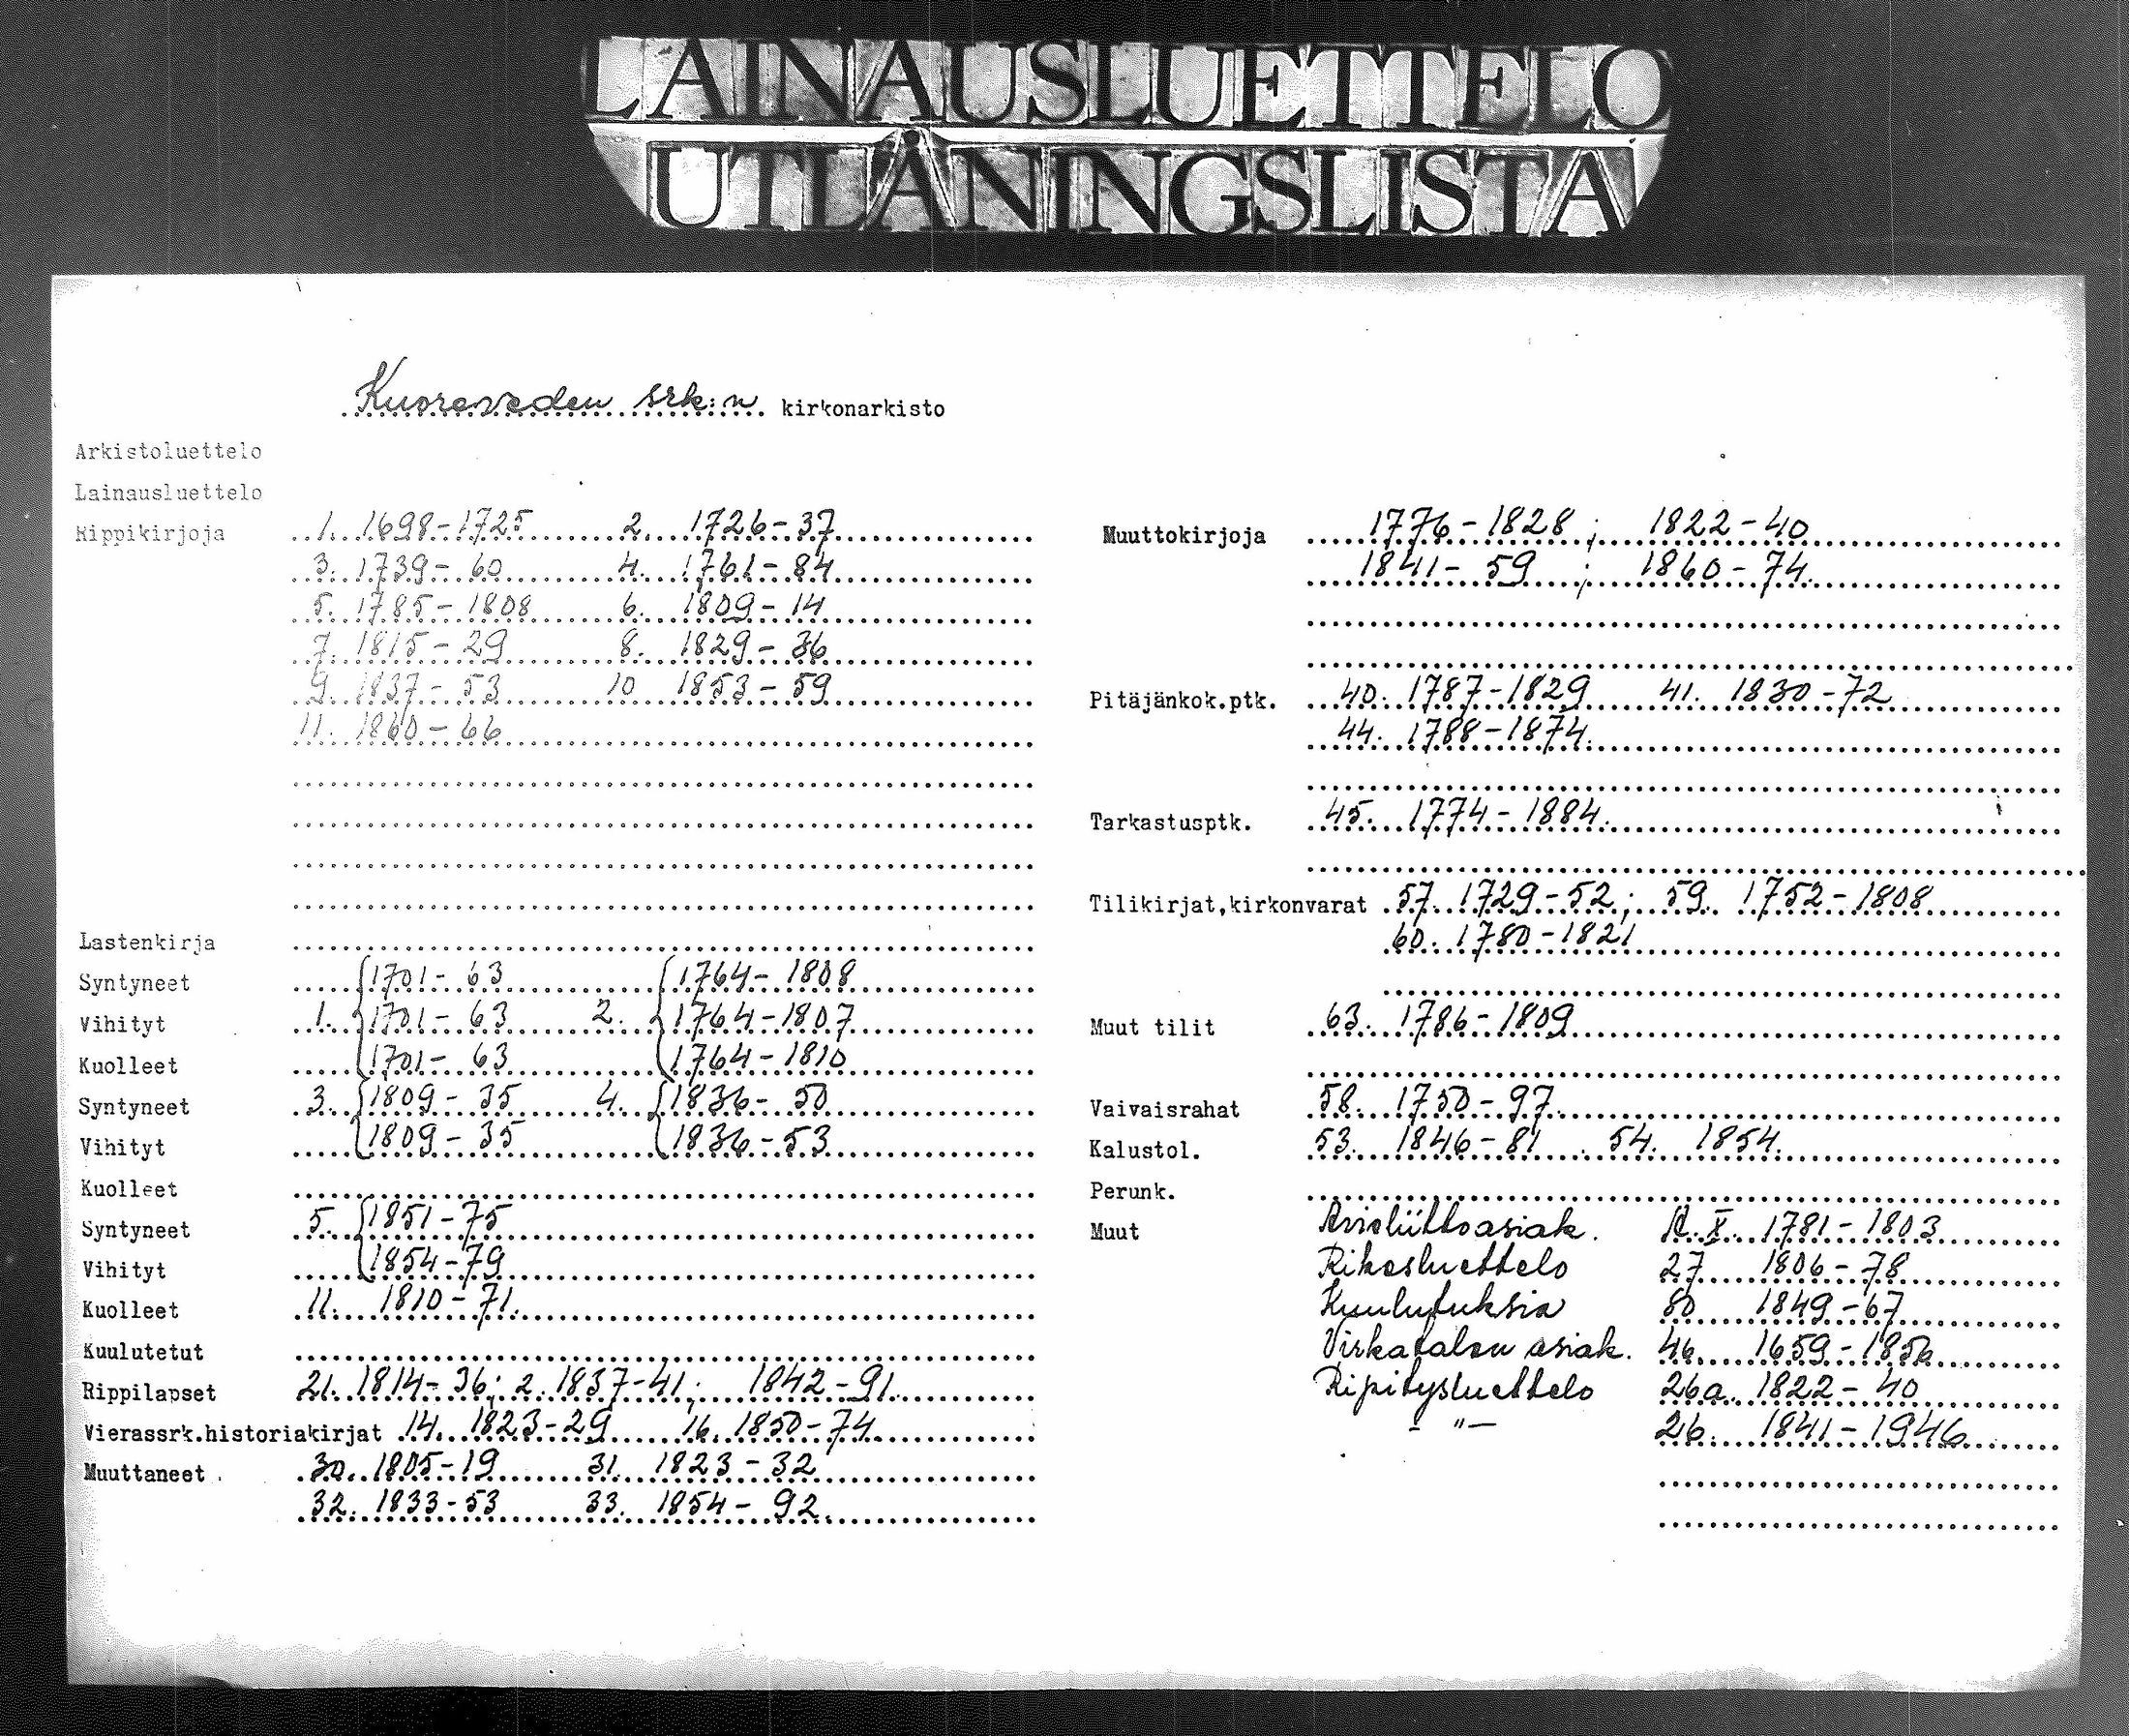 LAINAUSLUETTELO
UTLÅNINGSLISTA
Kuoreveden srk:n kirkonarkisto
Arkistoluettelo
Lainausluettelo
Rippikirjoja 1. 1698-1725 2. 1726-37
3. 1739-60 4. 1761-84
5. 1785-1808 6. 1809-14
7. 1815-29 8. 1829-36
9. 1837-53 10 1853-59
11. 1860-66
Lastenkirja
Syntyneet 1701-63 1764-1808
Vihityt 1. 1701-63 2. 1764-1807
Kuolleet 1701-63 1764-1810
Syntyneet 3. 1809-35 4. 1836-50
Vihityt 1809-35 1836-53
Kuolleet
Syntyneet 5. 1851-75
Vihityt 1854-79
Kuolleet 11. 1810-71.
Kuulutetut
Rippilapset 21. 1814-36; 2. 1837-41; 1842-91.
Vierassrk.historiakirjat 14. 1823-29 16. 1850-74
Muuttaneet 30. 1805-19 31. 1823-32
32. 1833-53 33. 1854-92.
Muuttokirjoja 1776-1828; 1822-40
1841-59; 1860-74.
Pitäjänkok.ptk. 40. 1787-1829 41. 1830-72
44. 1788-1874.
Tarkastusptk. 45. 1774-1884.
Tilikirjat,kirkonvarat 57. 1729-52; 59. 1752-1808
60. 1780-1821
Muut tilit 63. 1786-1809
Vaivaisrahat 58. 1750-97.
Kalustol. 53. 1846-81 54. 1854.
Perunk.
Muut Avioliittoasiak. 1781-1803
Rikosluettelo 27 1806-78
Kuulutuksia 80 1849-67
Virkatalon asiak. 46. 1659-1856
Ripitysluettelo 26a. 1822-40
- " - 26. 1841-1946